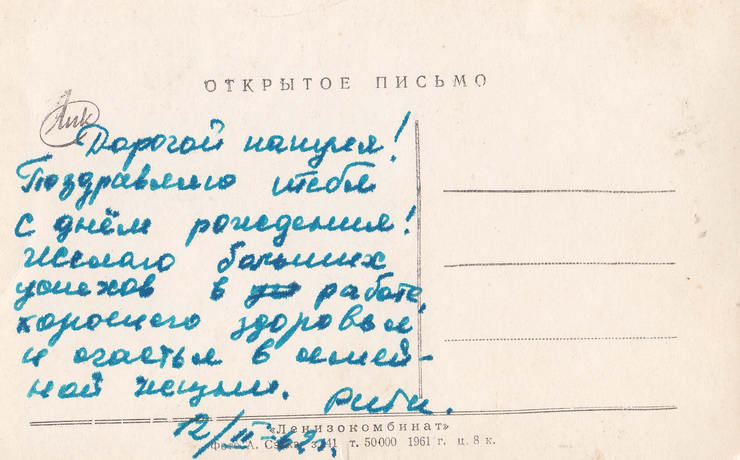 ОТКРЫТОЕ ПИСЬМО
Дорогой папуля!
Поздравляю тебя
с днём рождения!
Желаю больших
успехов в работе,
хорошего здоровья
и счастья в семей-
ной жизни.
12/II-62г.
«Ленизокомбинат»
Фото А. з. 41 т. 50 000 1961 г. ц. 8 к.